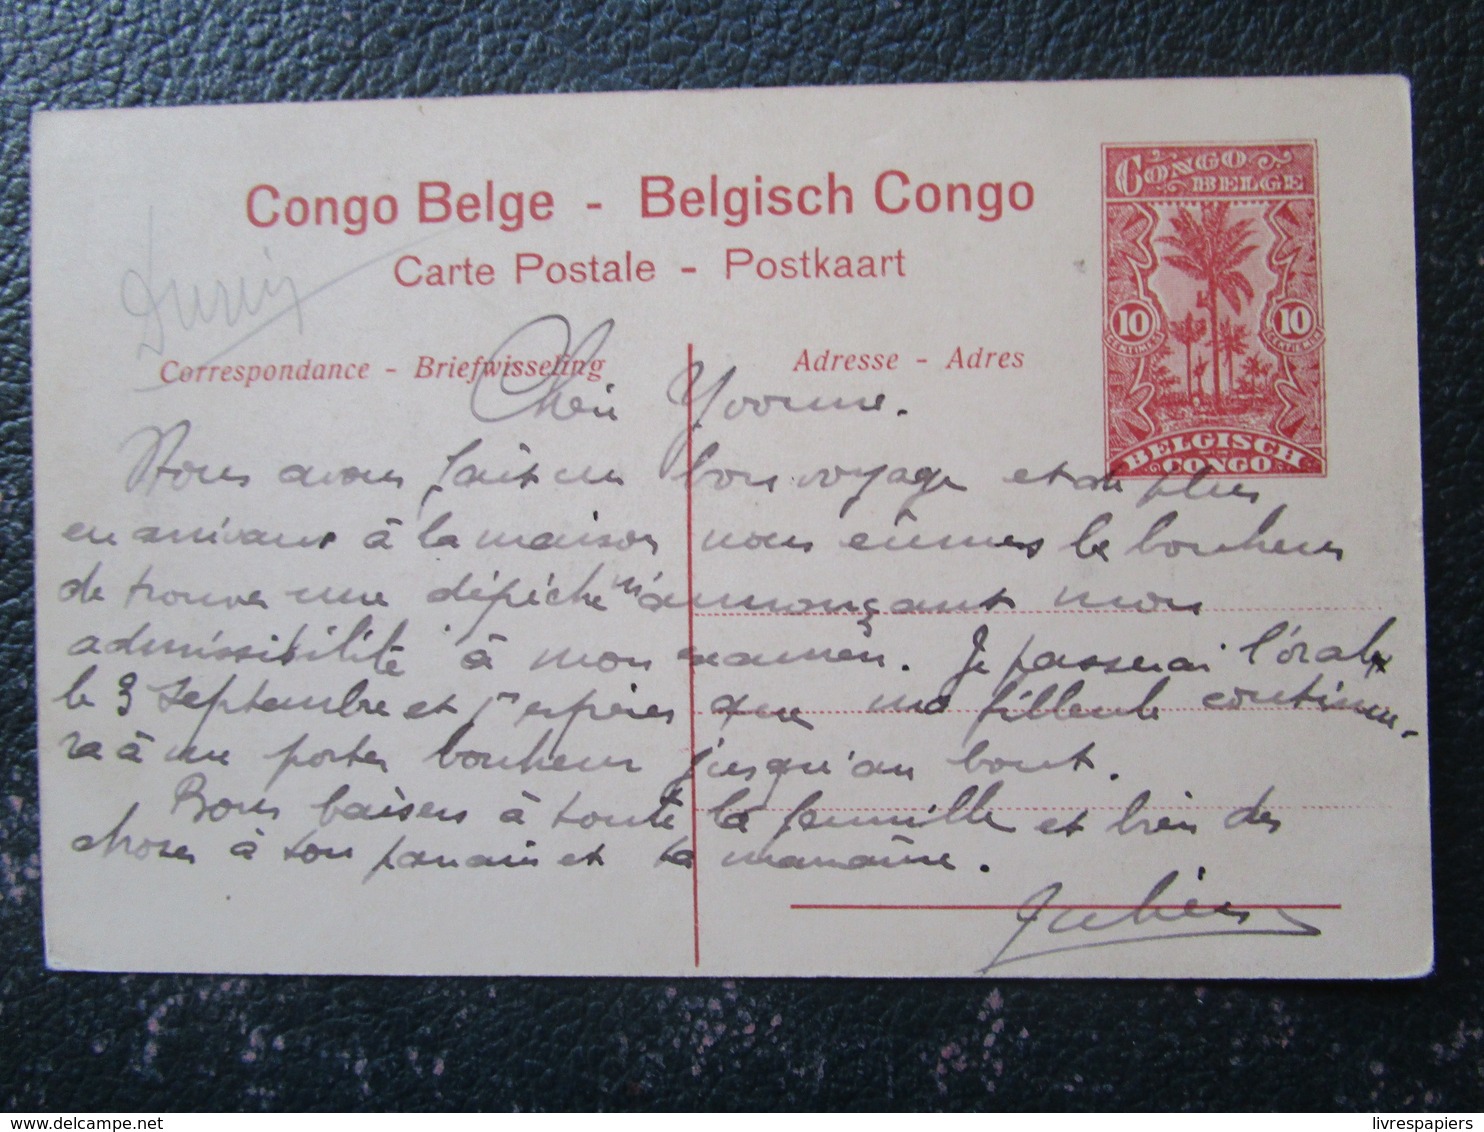 Congo Belge - Belgisch Congo
Carte Postale - Postkaart
CONGO BELGE
10 CENTIMES 10 CENTIMES
BELGISCH CONGO
Correspondance - Briefwisseling
Adresse - Adres
Cheri Yvonne.
Nous avons fait un bon voyage et de plus
en arrivant à la maison nous eûmes le bonheur
de trouver une dépêche m'annonçant mon
admissibilité à mon examen. Je passerai l'oral
le 3 septembre et j'espère que ma filleule continue-
ra à me porter bonheur jusqu'au bout.
Bons baisers à toute la famille et bien des
choses à ton parrain et ta marraine.
Julien
livrespapiers